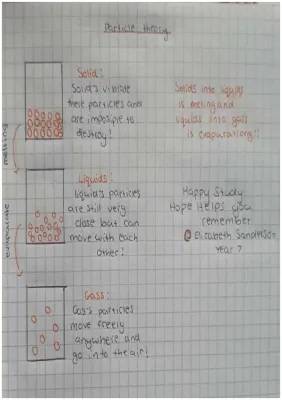 Particle theory
Solid:
Solid's vibrate
their particles and
are imposible to
destroy!
Solids into liquids
is melting and
liquids into gass
is evaporationg!!
Liquids:
liquid's particles
are still very
close but can
move with each
other!
Happy Study
Hope Helps you
remember
@ Elizabeth Sanderson
year 7
Gass:
Gas's particles
move freely
anywhere and
go into the air!